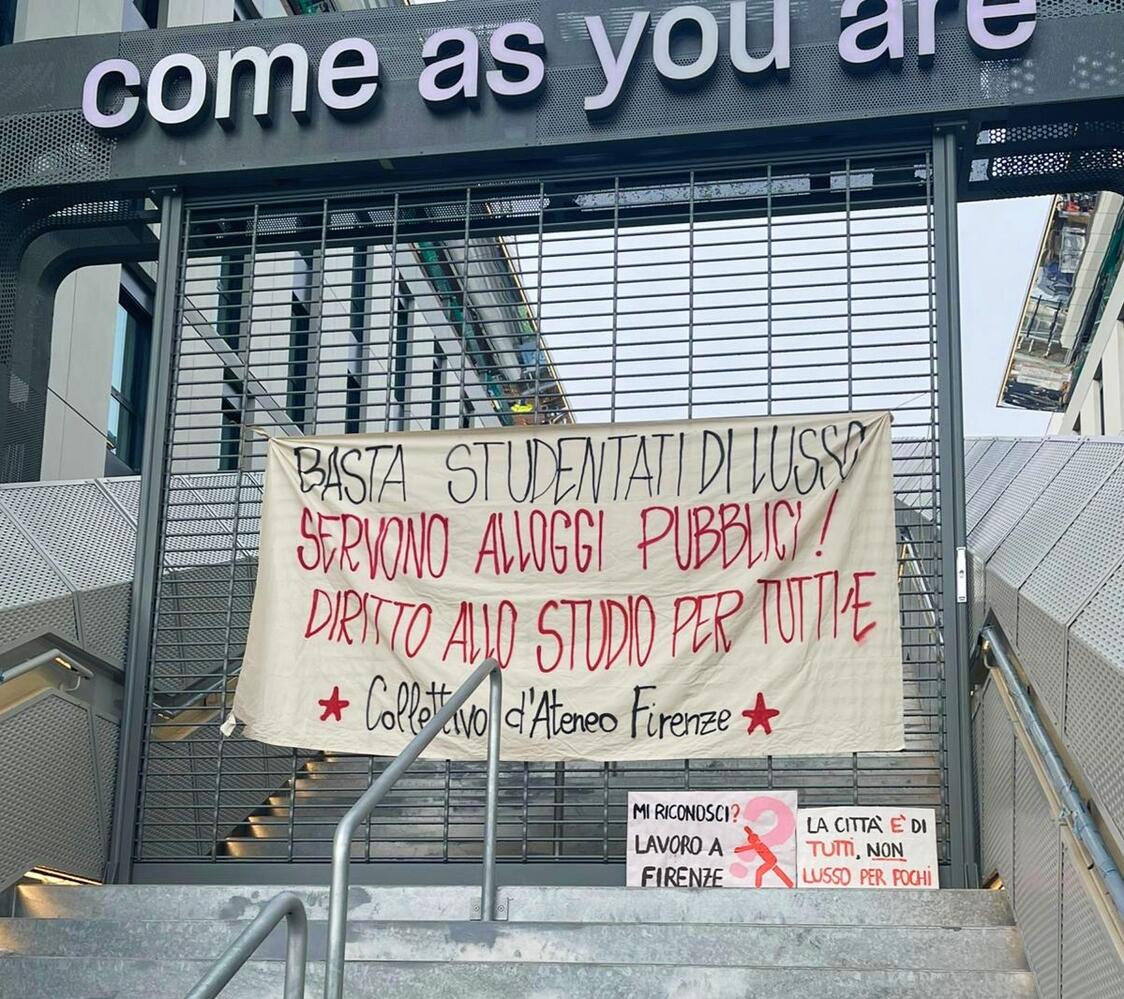 come as you are
BASTA STUDENTATI DI LUSSO
SERVONO ALLOGGI PUBBLICI!
DIRITTO ALLO STUDIO PER TUTTI,E
★ Collettivo d'Ateneo Firenze ★
MI RICONOSCI?
LAVORO A
FIRENZE
LA CITTÀ È DI
TUTTI, NON
LUSSO PER POCHI